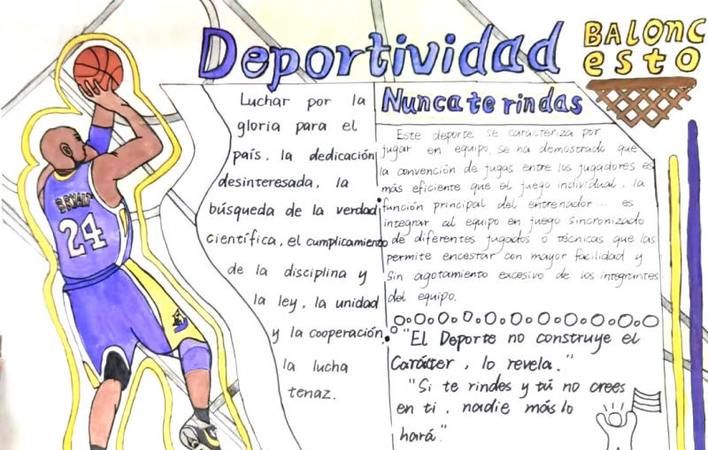 Deportividad
BALONC
esto
BRYANT
24
Luchar por la
gloria para el
país, la dedicación
desinteresada, la
búsqueda de la verdad
científica, el cumplicamiento
de la disciplina y
la ley, la unidad
y la cooperación,
la lucha
tenaz.
Nunca te rindas
Este deporte se caracteriza por
jugar en equipo, se ha demostrado que
la convención de jugas entre los jugadores es
más eficiente que el juego individual, la
función principal del entrenador... es
integrar al equipo en juego sincronizado
de diferentes jugados o técnicas que las
permite encestar con mayor facilidad y
sin agotamiento excesivo de los integrantes
del equipo.
"El Deporte no construye el
Carácter, lo revela."
"Si te rindes y tú no crees
en ti, nadie más lo
hará."